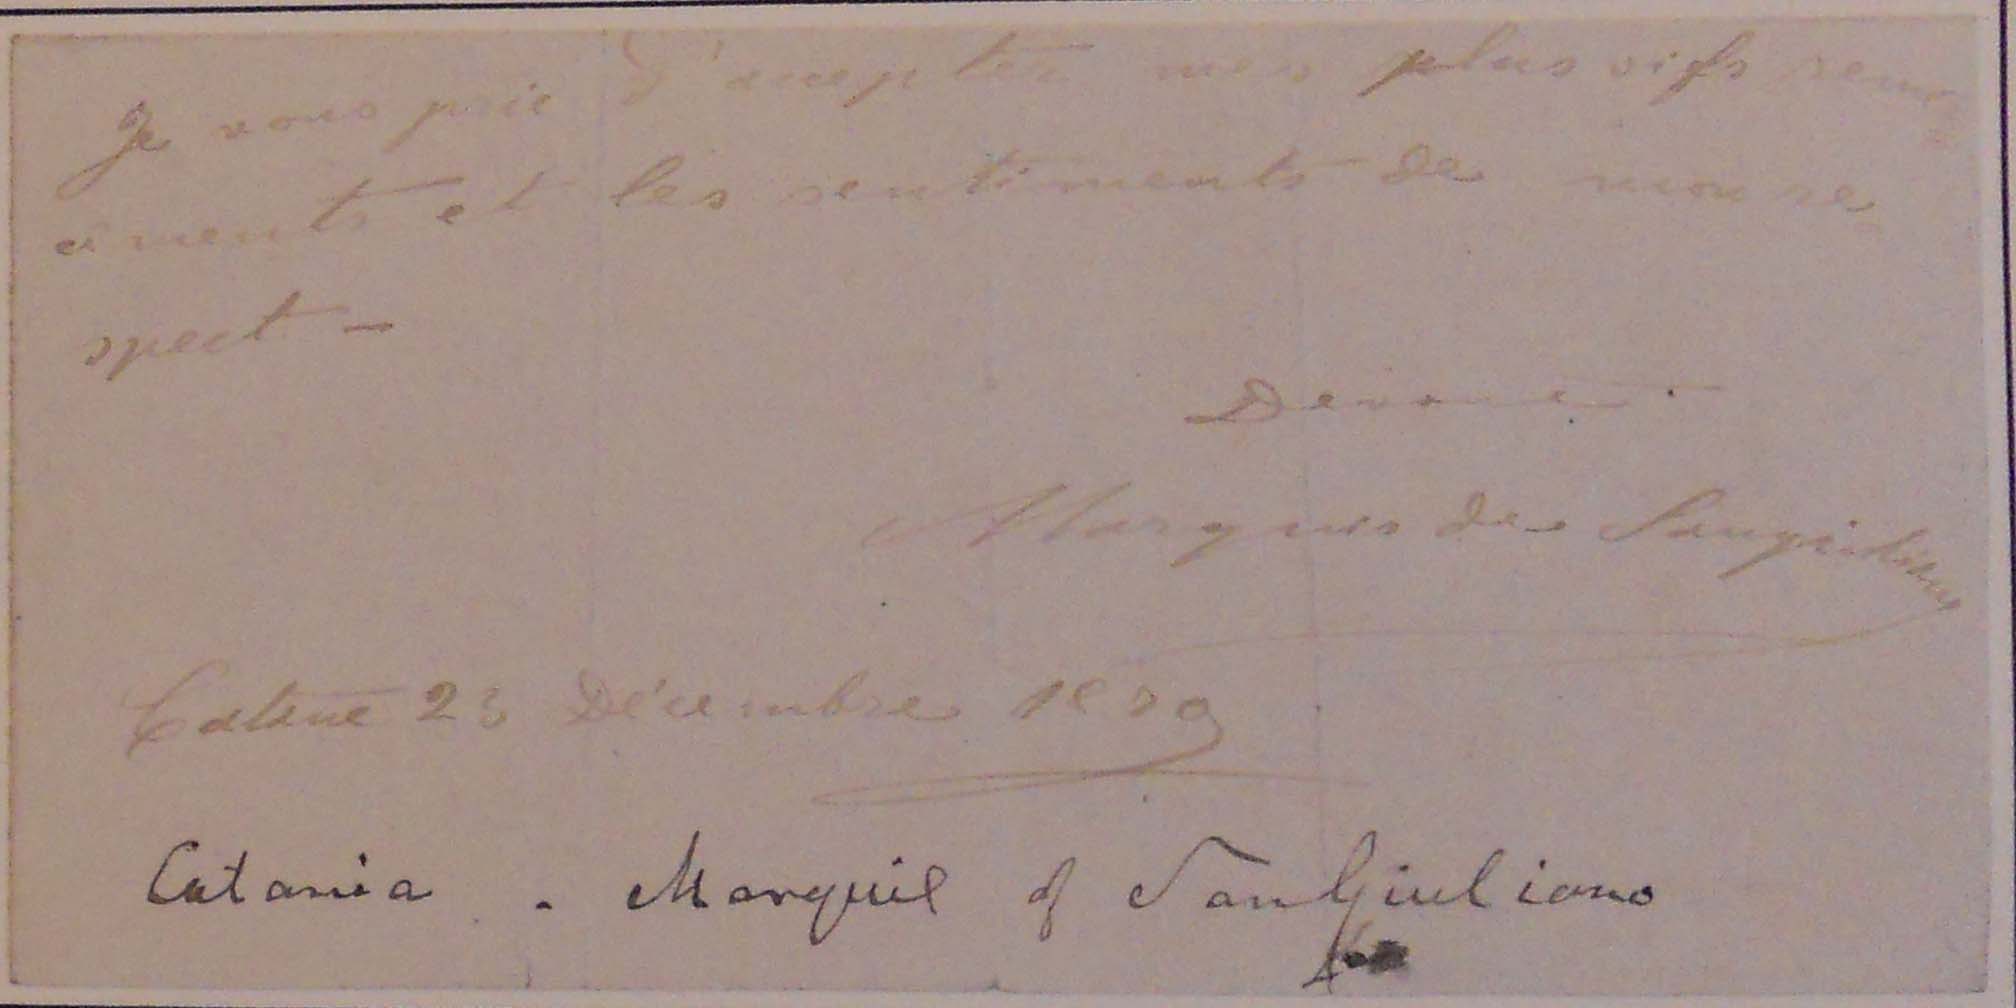 Je vous prie d'accepter mes plus vifs remer
ciments et les sentiments de mon re
spect -
Devoué
Marquis de Sangiuliano
Catane 23 Décembre 1879
Catania - Marquis of SanGiuliano